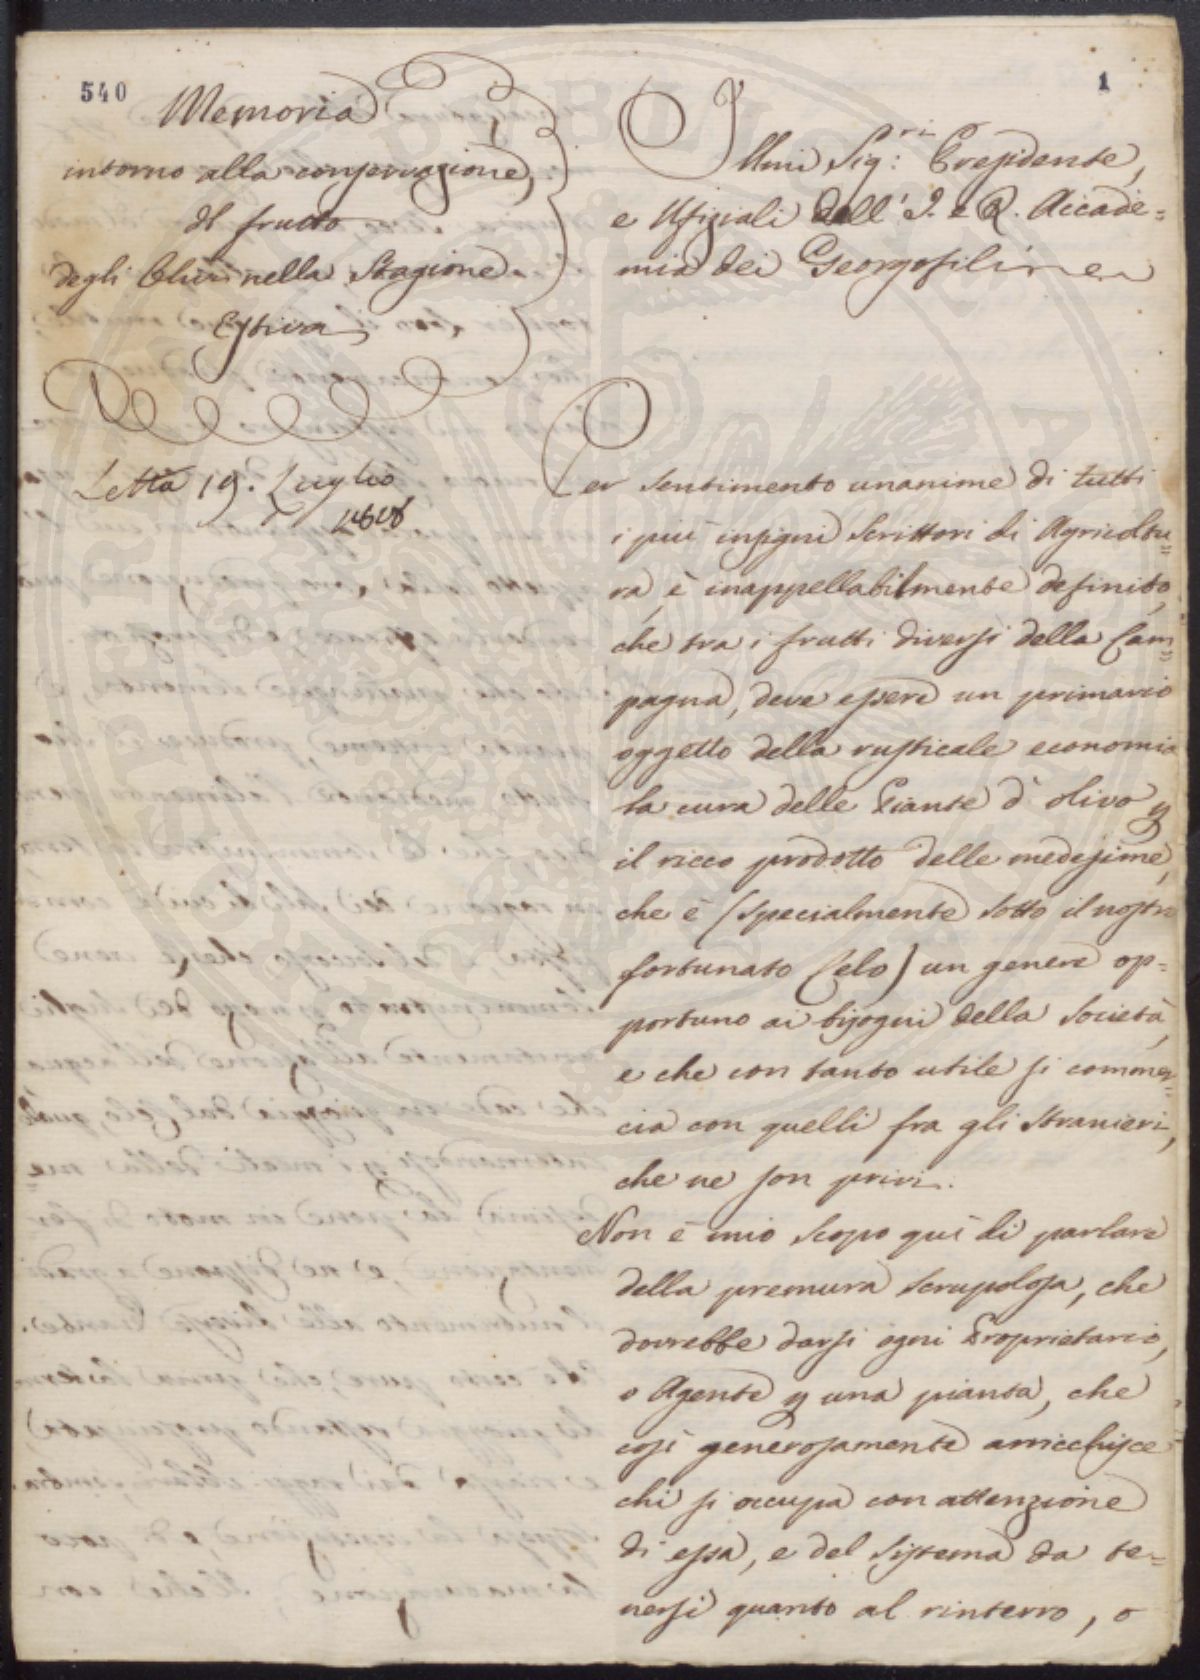 540
Memoria
intorno alla conservazione,
del frutto
degli Ulivi nella Stagione
Estiva
Letta 19. Luglio
1818
1
Illmi Sig:ri Presidente,
e Ufiziali dell' I. e R. Accade=
mia dei Georgofili
Per sentimento unanime di tutti
i più insigni Scrittori di Agricoltu=
ra, è inappellabilmente definito,
che tra i frutti diversi della Cam=
pagna, deve essere un primario
oggetto della rusticale economia
la cura delle Piante d'olivo p
il ricco prodotto delle medesime,
che è (specialmente sotto il nostro
fortunato Celo) un genere op=
portuno ai bisogni della Società,
e che con tanto utile si commer=
cia con quelli fra gli Stranieri,
che ne son privi.
Non è mio scopo quì di parlare
della premura scrupolosa, che
dovrebbe darsi ogni Proprietario,
o Agente p una pianta, che
così generosamente arricchisce
chi si occupa con attenzione
di essa, e del Sistema da te=
nersi quanto al rinterro, o